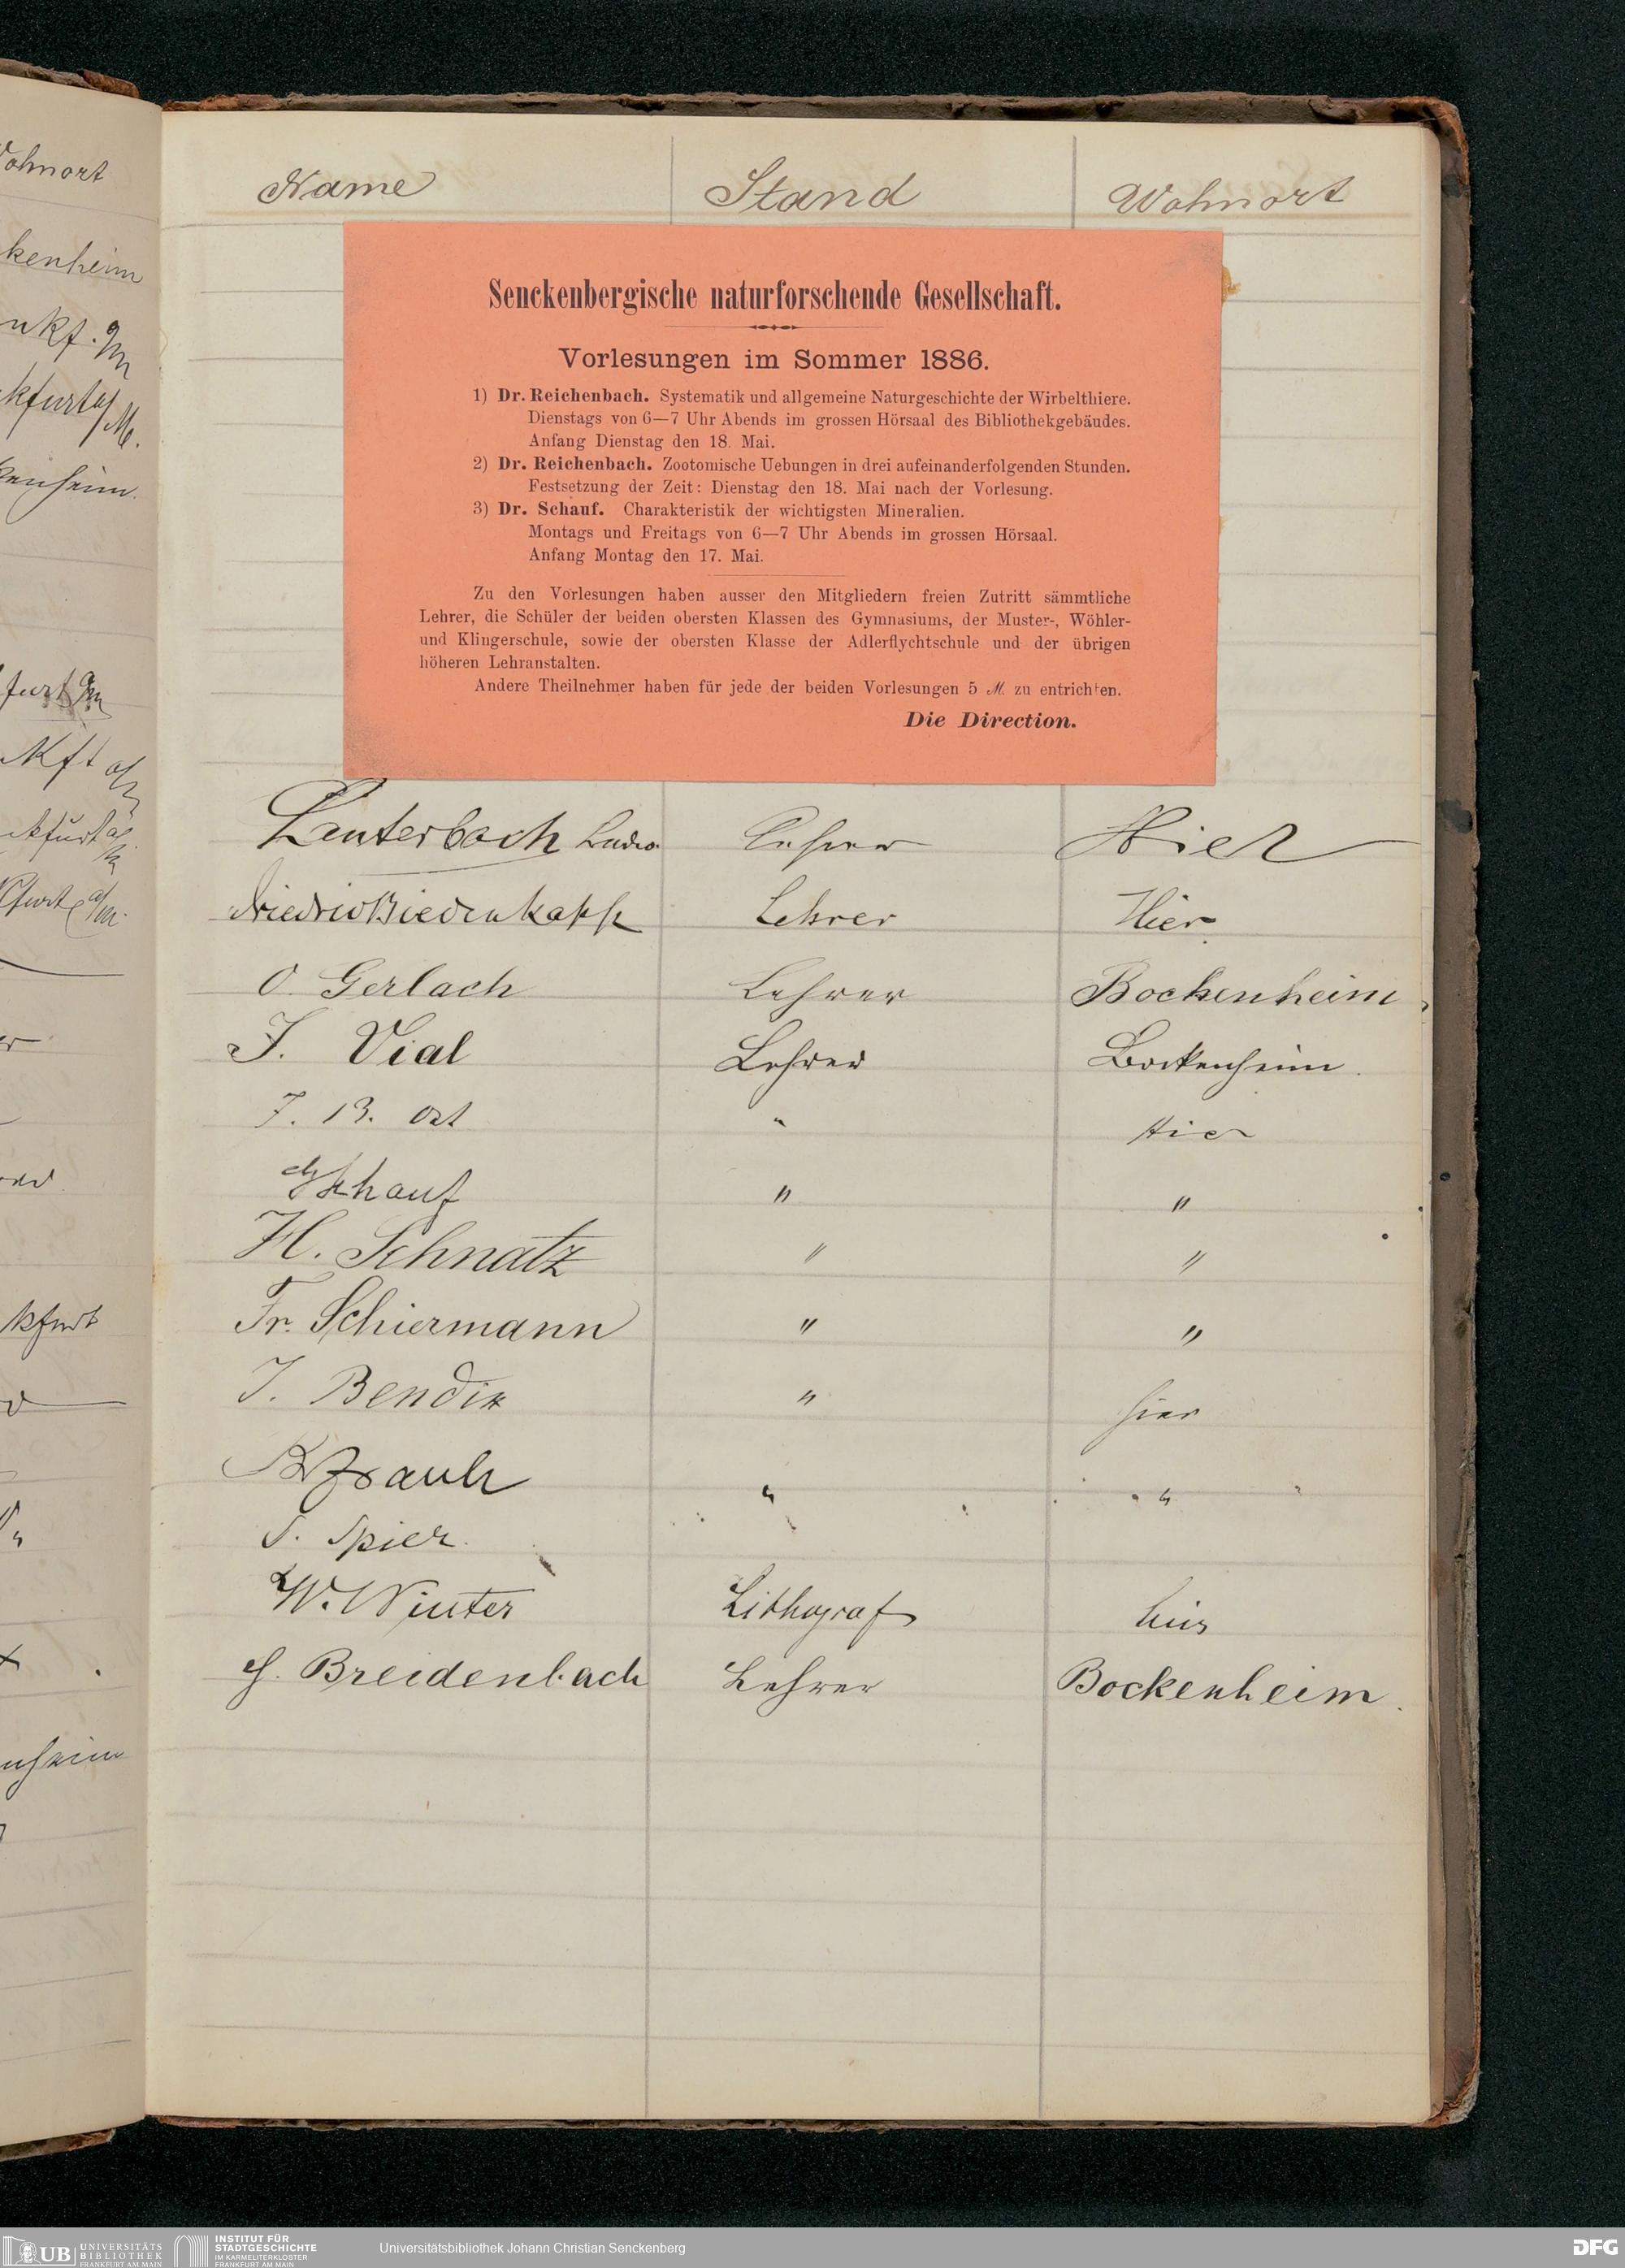 Name Stand Wohnort
Senckenbergische naturforschende Gesellschaft.
Vorlesungen im Sommer 1886.
1) Dr. Reichenbach. Systematik und allgemeine Naturgeschichte der Wirbelthiere.
Dienstags von 6—7 Uhr Abends im grossen Hörsaal des Bibliothekgebäudes.
Anfang Dienstag den 18. Mai.
2) Dr. Reichenbach. Zootomische Uebungen in drei aufeinanderfolgenden Stunden.
Festsetzung der Zeit: Dienstag den 18. Mai nach der Vorlesung.
3) Dr. Schauf. Charakteristik der wichtigsten Mineralien.
Montags und Freitags von 6—7 Uhr Abends im grossen Hörsaal.
Anfang Montag den 17. Mai.
Zu den Vorlesungen haben ausser den Mitgliedern freien Zutritt sämmtliche
Lehrer, die Schüler der beiden obersten Klassen des Gymnasiums, der Muster-, Wöhler-
und Klingerschule, sowie der obersten Klasse der Adlerflychtschule und der übrigen
höheren Lehranstalten.
Andere Theilnehmer haben für jede der beiden Vorlesungen 5 M. zu entrichten.
Die Direction.
Lauterbach Lehrer Hier
Biedenkapp Lehrer Hier
O. Gerlach Lehrer Bockenheim
J. Vial Lehrer Bockenheim.
J. B. Ort " Hier
" "
H. Schnatz " "
Fr. Schiermann " "
J. Bendix " hier
" "
S. Spier.
W. Winter Lithograf hier
Breidenbach Lehrer Bockenheim.
Wohnort
kenheim
UB UNIVERSITÄTS
BIBLIOTHEK
FRANKFURT AM MAIN
INSTITUT FÜR
STADTGESCHICHTE
IM KARMELITERKLOSTER
FRANKFURT AM MAIN
Universitätsbibliothek Johann Christian Senckenberg
DFG